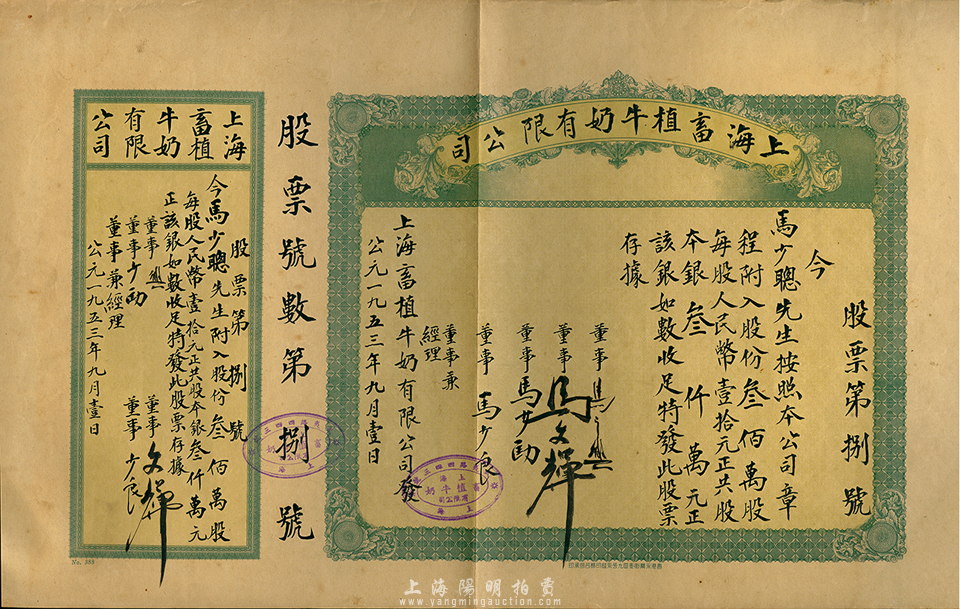 上海畜植牛奶有限公司
股票第捌號
今
馬少聰先生按照本公司章
程附入股份叁佰萬股
每股人民幣壹拾元正共股
本銀叁仟萬元正
該銀如數收足特發此股票
存據
董事
董事 馬文輝
董事 馬少勋
董事 馬少良
董事兼
經理
上海畜植牛奶有限公司發
公元一九五三年九月壹日
股票號數第捌號
上海
畜植
牛奶
有限
公司
股票第捌號
今馬少聰先生附入股份叁佰萬股
每股人民幣壹拾元正共股本銀叁仟萬元
正該銀如數收足特發此股票存據
董事
董事 文輝
董事 少勋
董事 少良
董事兼經理
公元一九五三年九月壹日
No. 388
上海陽明拍賣
www.yangmingauction.com